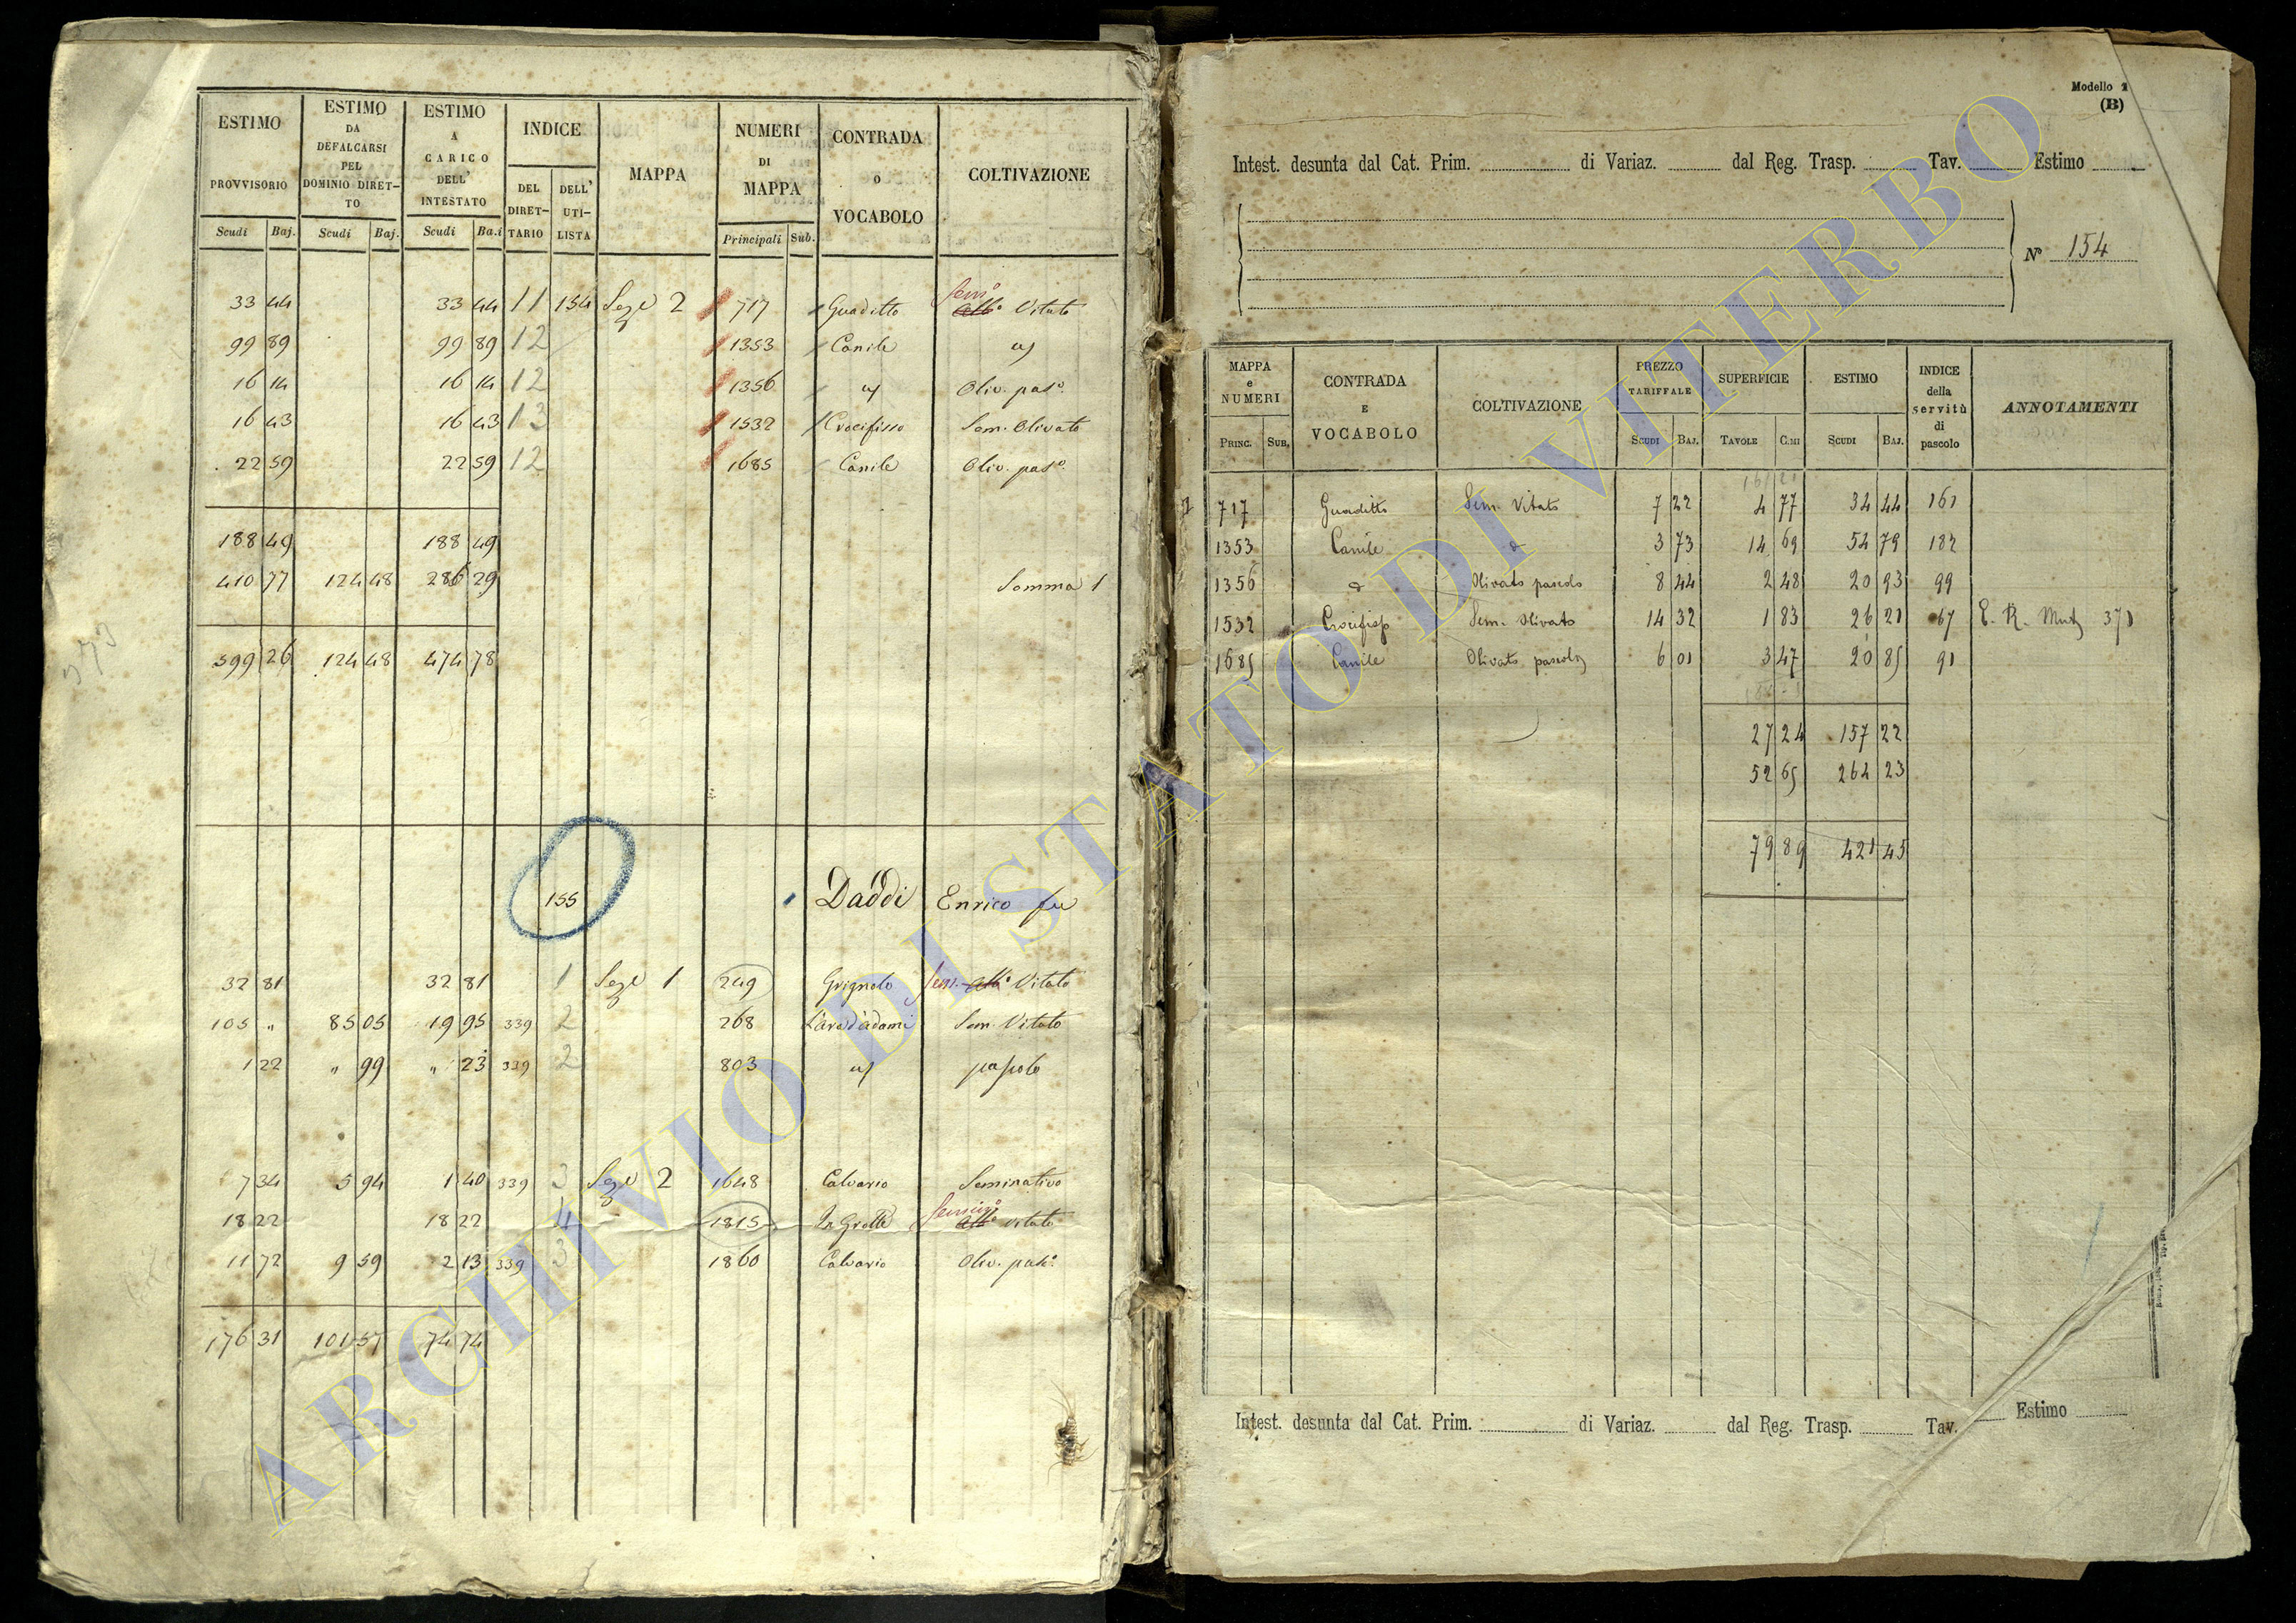 ESTIMO PROVVISORIO
ESTIMO DA DEFALCARSI PEL DOMINIO DIRET-TO
ESTIMO A CARICO DELL' INTESTATO
INDICE
DEL DIRET-TARIO
DELL' UTI-LISTA
MAPPA
NUMERI DI MAPPA
CONTRADA o VOCABOLO
COLTIVAZIONE
Scudi Baj. Scudi Baj. Scudi Ba.i Principali Sub.
33 44 33 44 11 154 Seze 2 717 Guaditto Semo Vitato
99 89 99 89 12 1353 Canile
16 14 16 14 12 1356 Oliv. paso.
16 43 16 43 13 1532 Crocifisso Sem. Olivato
22 59 22 59 12 1685 Canile Oliv. paso.
188 49 188 49
410 77 124 48 286 29 Somma 1
599 26 124 48 474 78
155 Daddi Enrico fu
32 81 32 81 1 Seze 1 249 Grignolo Sem. Vitato
105 " 85 05 19 95 339 2 268 Sem. Vitato
1 22 " 99 " 23 339 2 803 pascolo
7 34 5 94 1 40 339 3 Seze 2 1648 Calvario Seminativo
18 22 18 22 4 1815 Le Grotte Vitato
11 72 9 59 2 13 339 3 1860 Calvario Oliv. paso.
176 31 101 57 74 74
Modello 1
(B)
Intest. desunta dal Cat. Prim. di Variaz. dal Reg. Trasp. Tav. Estimo
No 154
MAPPA e NUMERI
CONTRADA E VOCABOLO
COLTIVAZIONE
PREZZO TARIFFALE
SUPERFICIE
ESTIMO
INDICE della servitù di pascolo
ANNOTAMENTI
PRINC. SUB. SCUDI BAJ. TAVOLE C.MI SCUDI BAJ.
717 Guaditto Sem. Vitato 7 22 4 77 34 44 161
1353 Canile 3 73 14 69 54 79 182
1356 Olivato pascolo 8 44 2 48 20 93 99
1532 Crocifisso Sem. Olivato 14 32 1 83 26 21 67 E. R. 371
1685 Canile Olivato pascolo 6 01 3 47 20 85 91
27 24 157 22
52 65 264 23
79 89 421 45
Intest. desunta dal Cat. Prim. di Variaz. dal Reg. Trasp. Tav. Estimo
ARCHIVIO DI STATO DI VITERBO